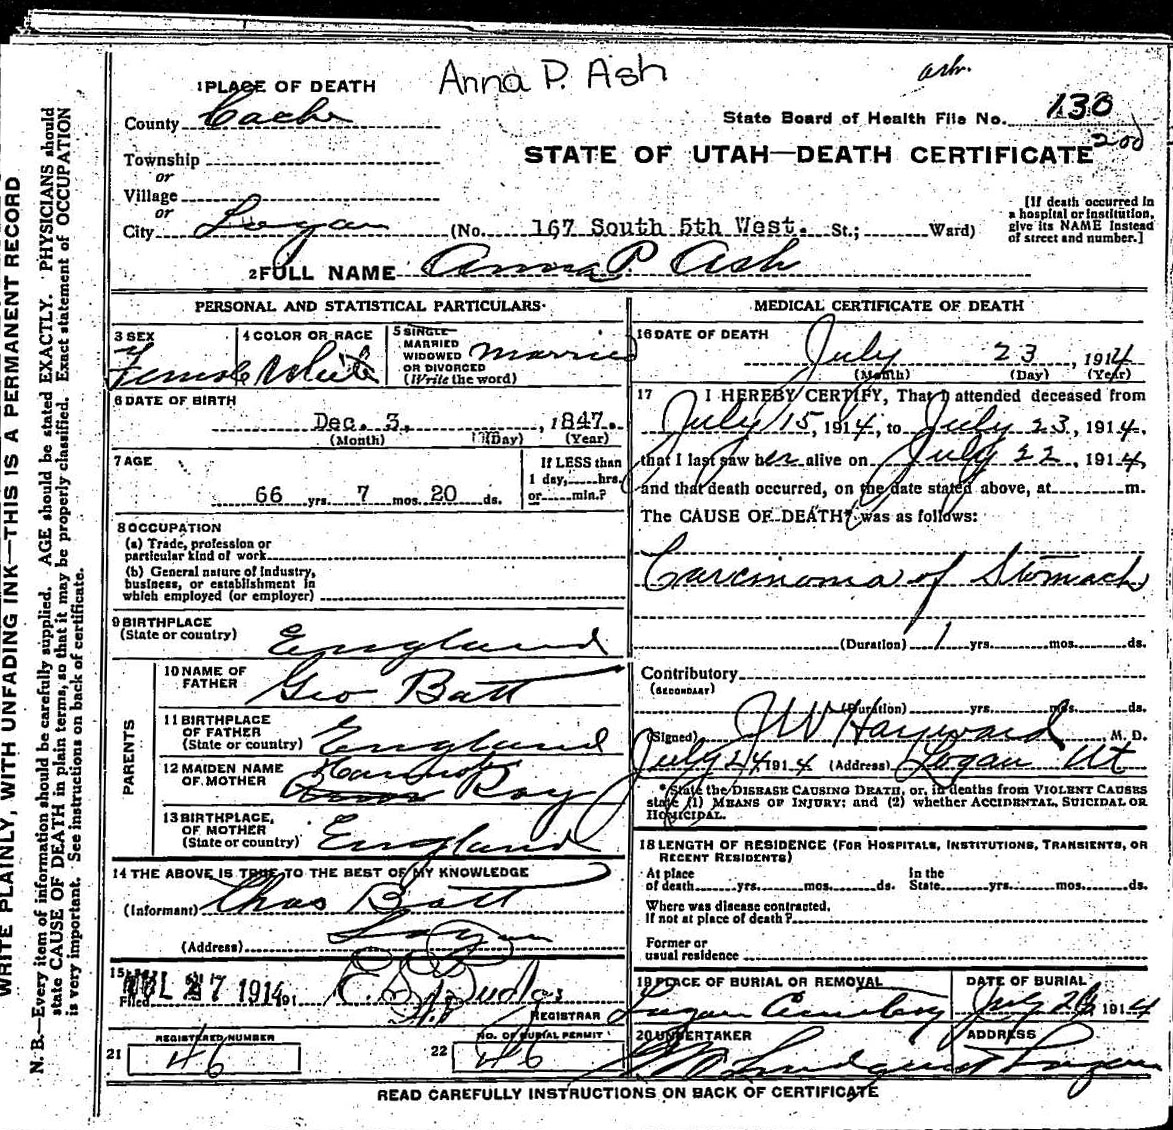 Anna P. Ash
ash.
1 PLACE OF DEATH
County Cache
State Board of Health File No. 130
200
STATE OF UTAH—DEATH CERTIFICATE
Township
or
Village
or
City Logan (No. 167 South 5th West. St.; Ward)
[If death occurred in a hospital or institution, give its NAME instead of street and number.]
2 FULL NAME Anna P. Ash
PERSONAL AND STATISTICAL PARTICULARS.
3 SEX
Female
4 COLOR OR RACE
White
5 SINGLE
MARRIED
WIDOWED
OR DIVORCED
(Write the word)
married
6 DATE OF BIRTH
Dec. 3, 1847.
(Month) (Day) (Year)
7 AGE
66 yrs. 7 mos. 20 ds.
If LESS than
1 day, hrs.
or min.?
8 OCCUPATION
(a) Trade, profession or
particular kind of work
(b) General nature of industry,
business, or establishment in
which employed (or employer)
9 BIRTHPLACE
(State or country)
England
PARENTS
10 NAME OF
FATHER
Geo Batt
11 BIRTHPLACE
OF FATHER
(State or country)
England
12 MAIDEN NAME
OF MOTHER
Ray
13 BIRTHPLACE,
OF MOTHER
(State or country)
England
14 THE ABOVE IS TRUE TO THE BEST OF MY KNOWLEDGE
(Informant) Chas Batt
(Address) Logan
15
Filed JUL 27 1914 191
REGISTRAR
REGISTERED NUMBER
21 46
NO. OF BURIAL PERMIT
22 46
MEDICAL CERTIFICATE OF DEATH
16 DATE OF DEATH
July 23, 1914
(Month) (Day) (Year)
17 I HEREBY CERTIFY, That I attended deceased from
July 15, 1914, to July 23, 1914,
that I last saw her alive on July 22, 1914,
and that death occurred, on the date stated above, at m.
The CAUSE OF DEATH* was as follows:
Carcinoma of Stomach
(Duration) 1 yrs. mos. ds.
Contributory
(SECONDARY)
(Duration) yrs. mos. ds.
(Signed) JW Hayward M. D.
July 24, 1914 (Address) Logan Ut
* State the DISEASE CAUSING DEATH, or, in deaths from VIOLENT CAUSES
state (1) MEANS OF INJURY; and (2) whether ACCIDENTAL, SUICIDAL OR
HOMICIDAL.
18 LENGTH OF RESIDENCE (FOR HOSPITALS, INSTITUTIONS, TRANSIENTS, OR
RECENT RESIDENTS)
At place
of death yrs. mos. ds.
In the
State yrs. mos. ds.
Where was disease contracted,
if not at place of death?
Former or
usual residence
19 PLACE OF BURIAL OR REMOVAL
Logan Cemetery
DATE OF BURIAL
July 1914
20 UNDERTAKER
Lundquist
ADDRESS
Logan
READ CAREFULLY INSTRUCTIONS ON BACK OF CERTIFICATE
WRITE PLAINLY, WITH UNFADING INK—THIS IS A PERMANENT RECORD
N. B.—Every item of information should be carefully supplied. AGE should be stated EXACTLY. PHYSICIANS should
state CAUSE OF DEATH in plain terms, so that it may be properly classified. Exact statement of OCCUPATION
is very important. See instructions on back of certificate.